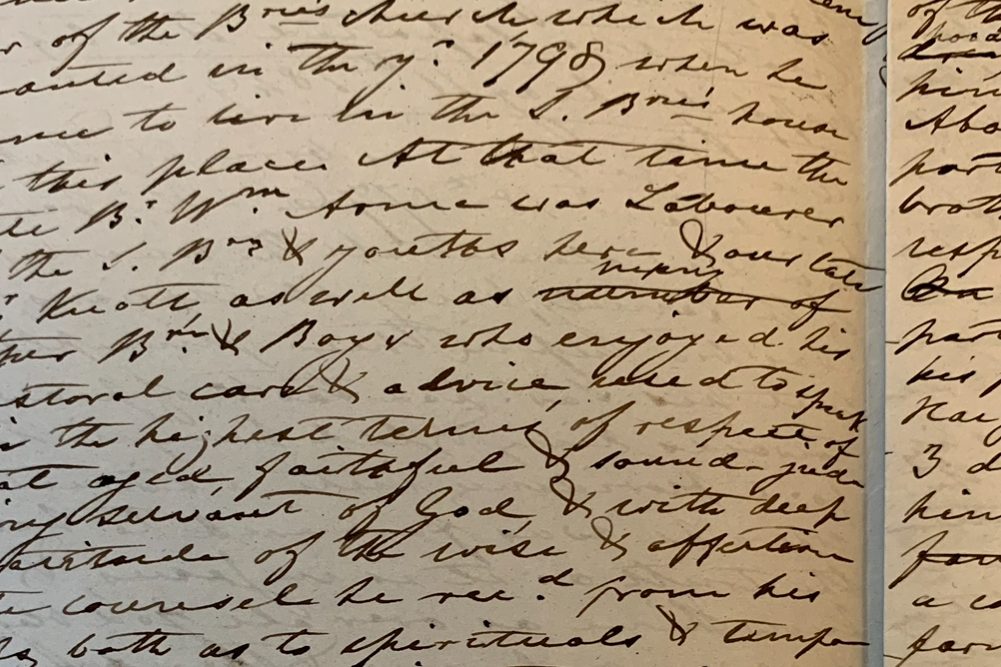 r of the Brn's church, which was
anted in the yr. 1798, when he
to live in the S. Brn's house
this place. At that time the
Br. Wm. Horne was Labourer
the S. Brn & youths here, & our late
Knott, as well as many
number of
Brn & Boys who enjoyed his
storal care & advice, used to speak
the highest terms, of respect, of
aged, faithful & sound-jud-
servant of God, & with deep
of the wise & affection
te counsel he recd. from his
both as to spirituals & tempo
of th
Abo
part
broth
resp
part
his
3 d
him
a co